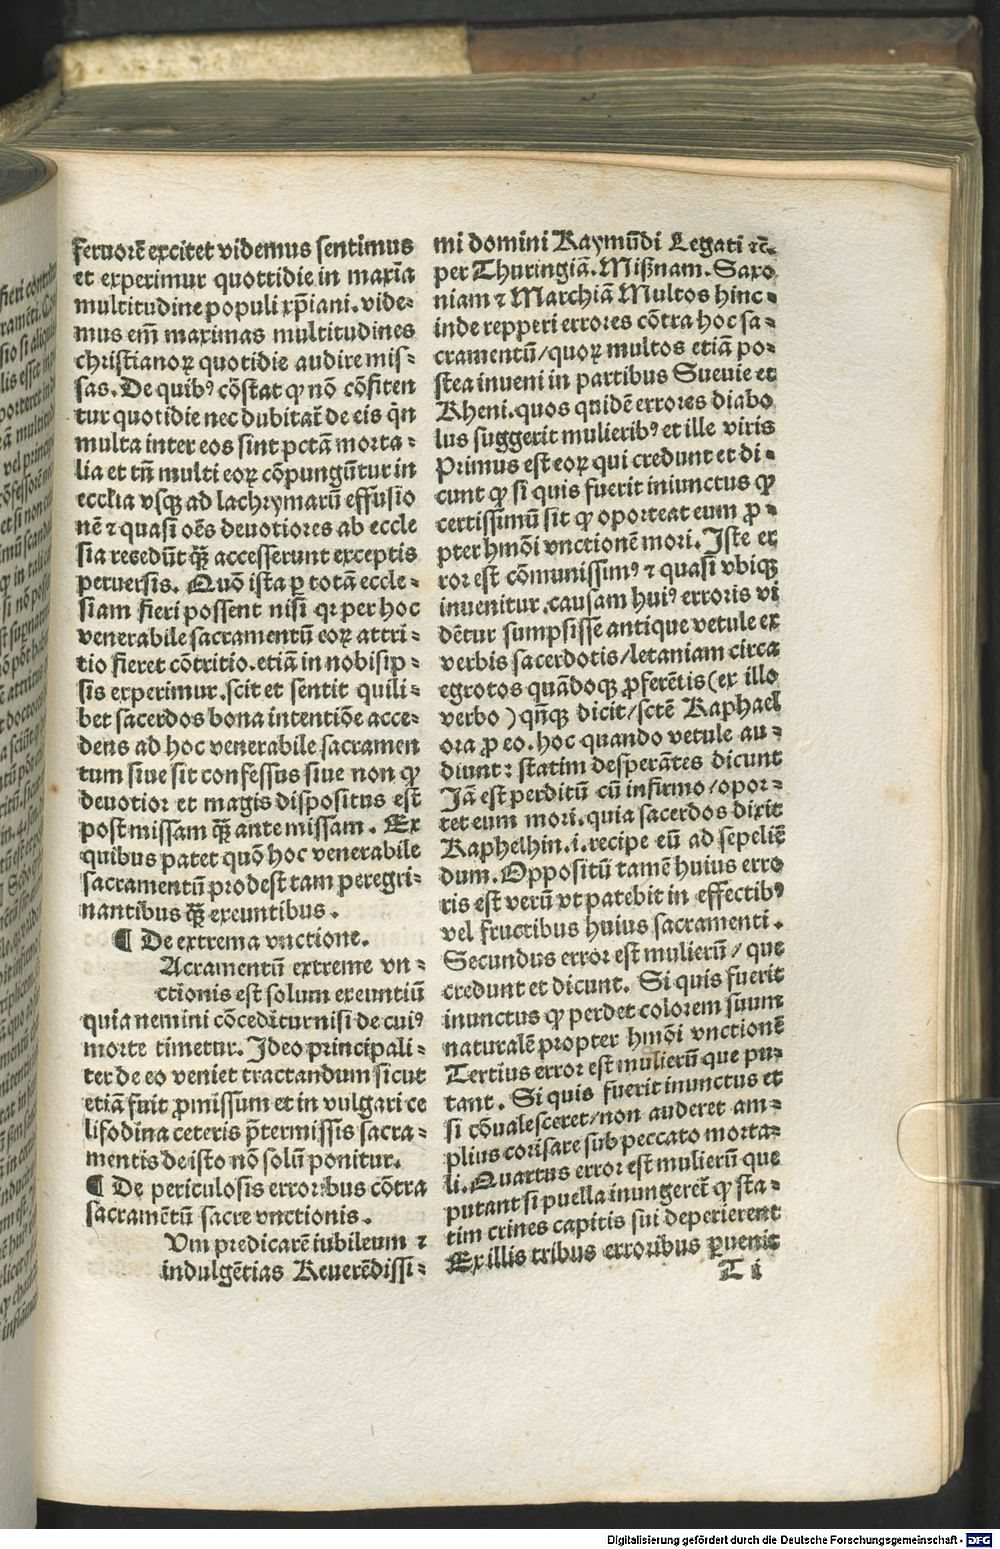 feruorē excitet videmus sentimus
et experimur quottidie in maxīa
multitudine populi xp̄iani. vide⸗
mus em̄ maximas multitudines
christianoꝝ quotidie audire mis⸗
sas. De quibꝰ cōstat ꝙ nō cōfiten
tur quotidie nec dubitat̄ de eis qͥn
multa inter eos sint pctā morta⸗
lia et tn̄ multi eoꝝ cōpungūtur in
ecclīa vsqꝫ ad lachrymarū effusio
nē ⁊ quasi oēs deuotiores ab eccle
sia recedūt qꝫ̄ accesserunt exceptis
peruersis. Quō ista ꝑ totā eccle⸗
siam fieri possent nisi qꝛ per hoc
venerabile sacramentū eoꝝ attri⸗
tio fieret cōtritio. etiā in nobisip⸗
sis experimur. scit et sentit quili⸗
bet sacerdos bona intentiōe acce⸗
dens ad hoc venerabile sacramen
tum siue sit confessus siue non ꝙ
deuotior et magis dispositus est
post missam qꝫ̄ ante missam. Ex
quibus patet quō hoc venerabile
sacramentū prodest tam peregri⸗
nantibus qꝫ̄ exeuntibus.
¶ De extrema vnctione.
Acramentū extreme vn⸗
ctionis est solum exeuntiū
quia nemini cōceditur nisi de cuiꝰ
morte timetur. Ideo principali⸗
ter de eo veniet tractandum sicut
etiā fuit ꝓmissum et in vulgari ce
lifodina ceteris p̄termissis sacra⸗
mentis de isto nō solū ponitur.
¶ De periculosis erroribus cōtra
sacramētū sacre vnctionis.
Vm predicarē iubileum ⁊
indulgētias Reuerēdissi⸗
mi domini Raymūdi Legati ⁊c̄.
per Thuringiā. Mißnam. Saxo
niam ⁊ Marchiā Multos hinc⸗
inde repperi errores cōtra hoc sa⸗
cramentū/quoꝝ multos etiā po⸗
stea inueni in partibus Sueuie et
Rheni. quos quidē errores diabo
lus suggerit mulieribꝰ et ille viris
Primus est eoꝝ qui credunt et di⸗
cunt ꝙ si quis fuerit iniunctus ꝙ
certissimū sit ꝙ oporteat eum ꝓ⸗
pter hmōi vnctionē mori. Iste er
ror est cōmunissimꝰ ⁊ quasi vbiqꝫ
inuenitur. causam huiꝰ erroris vi
dētur sumpsisse antique vetule ex
verbis sacerdotis/letaniam circa
egrotos quādoqꝫ ꝓferētis (ex illo
verbo) qn̄qꝫ dicit/sctē Raphael
ora ꝓ eo. hoc quando vetule au⸗
diunt: statim desperātes dicunt
Iā est perditū cū infirmo/opor⸗
tet eum mori. quia sacerdos dixit
Raphelhin .i. recipe eū ad sepeliē
dum. Oppositū tamē huius erro
ris est verū vt patebit in effectibꝰ
vel fructibus huius sacramenti.
Secundus error est mulierū/que
credunt et dicunt. Si quis fuerit
inunctus ꝙ perdet colorem suum
naturalē propter hmōi vnctionē
Tertius error est mulierū que pu⸗
tant. Si quis fuerit inunctus et
si cōualesceret/non auderet am⸗
plius corisare sub peccato morta⸗
li. Quartus error est mulierū que
putant si puella inungeret̄ ꝙ sta⸗
tim crines capitis sui deperierent
Ex illis tribus erroribus ꝑuenit
T i
Digitalisierung gefördert durch die Deutsche Forschungsgemeinschaft - DFG